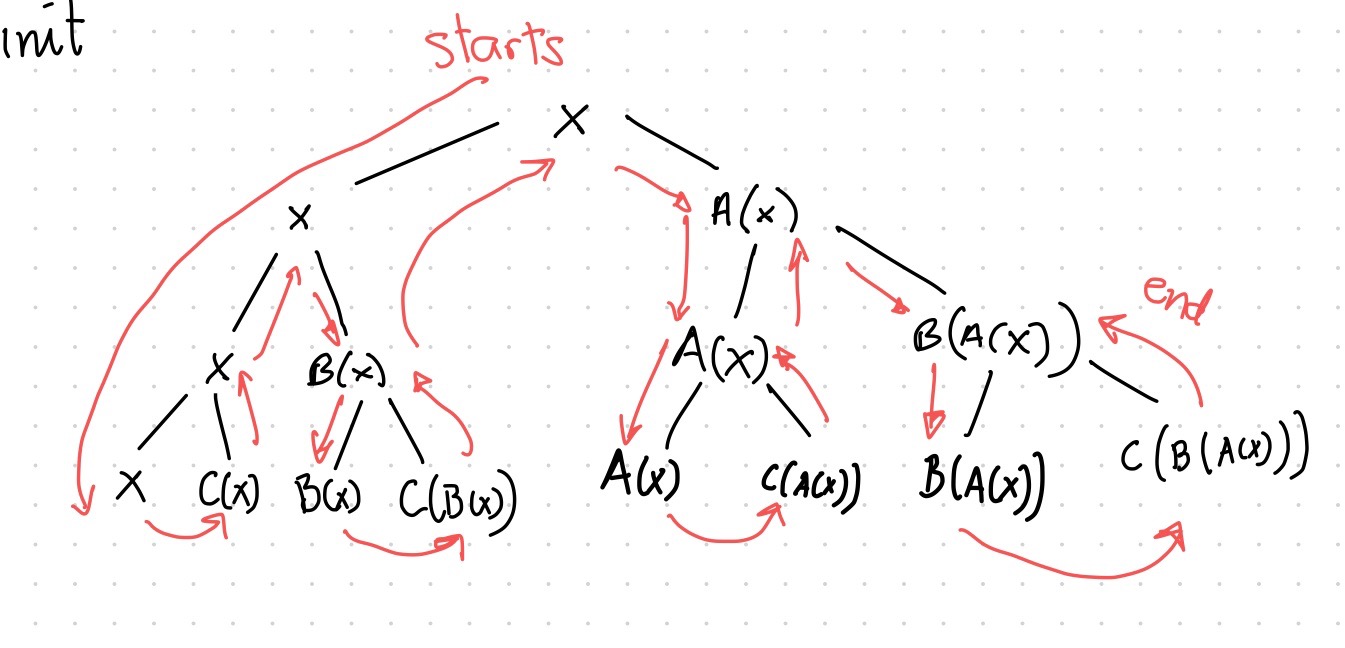 init
starts
X
X
A(x)
end
X
B(x)
A(x)
B(A(x))
X
C(x)
B(x)
C(B(x))
A(x)
C(A(x))
B(A(x))
C(B(A(x)))